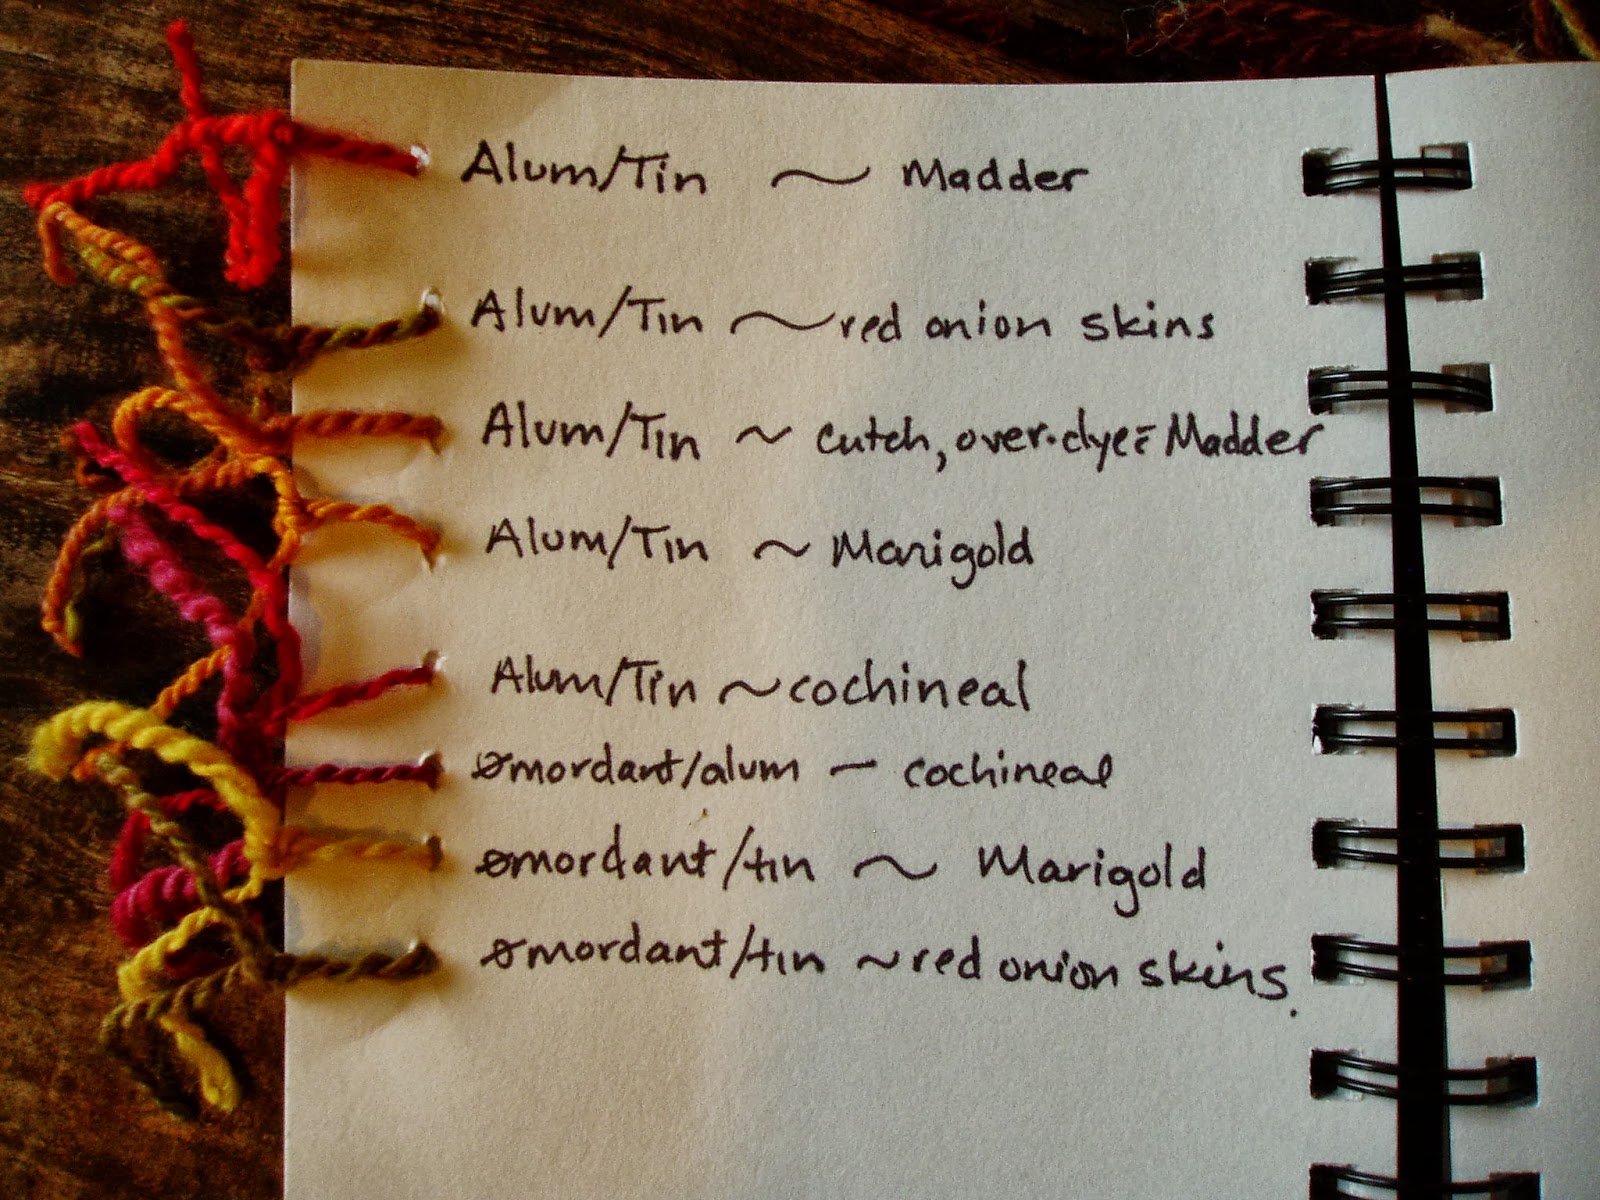 Alum/Tin ~ Madder
Alum/Tin ~ red onion skins
Alum/Tin ~ cutch, over-dye c̄ Madder
Alum/Tin ~ Marigold
Alum/Tin ~ cochineal
ømordant/alum — cochineal
ømordant/tin ~ Marigold
ømordant/tin ~ red onion skins.